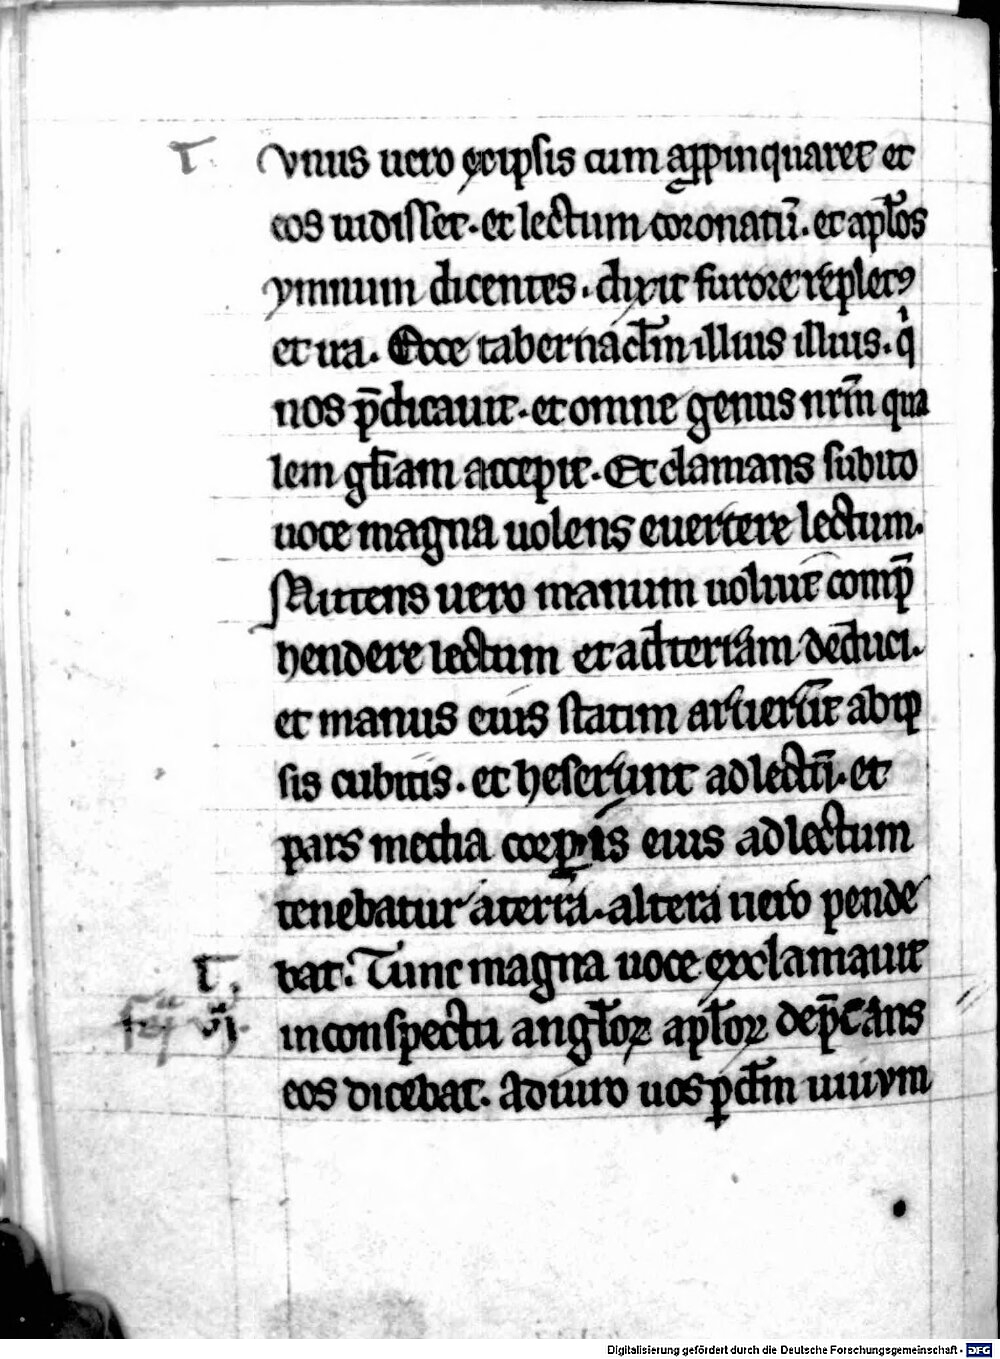 t. Vnus uero exipsis cum appinquaret et
eos uidisset. et lectum coronatū. et apl̄os
ymnum dicentes. dixit furore replet⁹
et ira. Ecce tabernac̄lm illius illius. qͥ
nos p̄dicauit. et omne genus nr̄m qua
lem gl̄iam accepit. Et clamans subito
uoce magna uolens euertere lectum.
Mittens uero manum uoluit comp̄
hendere lectum et ad terram deduci.
et manus eius statim aruer̄t ab ip
sis cubitis. et heserunt ad lectū. et
pars media corporis eius ad lectum
tenebatur a terra. altera uero pende
t. bat. Tunc magna uoce exclamauit
vj. inconspectu angl̄oꝝ apl̄oꝝ dep̄cans
eos dicebat. Adiuro uos p dm̄ uiuvm
Digitalisierung gefördert durch die Deutsche Forschungsgemeinschaft - DFG